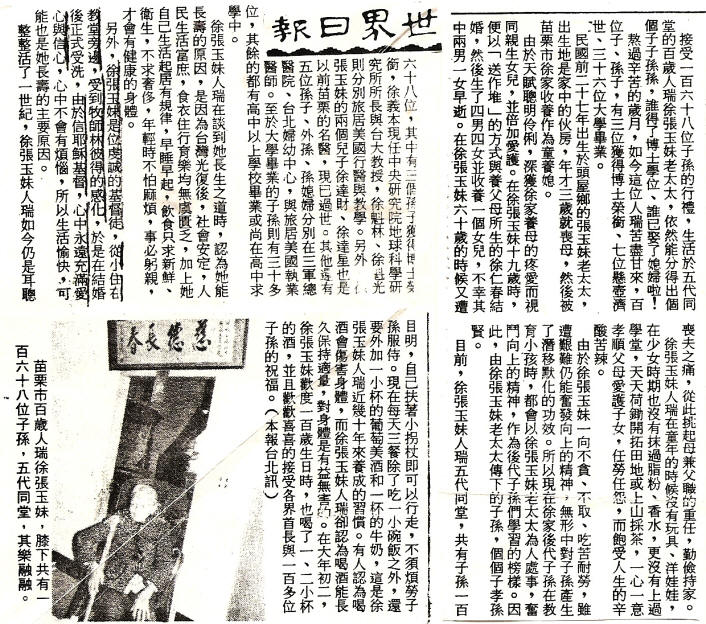 世界日報
接受一百六十八位子孫的行禮，生活於五代同
堂的百歲人瑞徐張玉妹老太太，依然能分得出個
個子子孫孫，誰得了博士學位、誰已娶了媳婦啦！
熬過辛苦的歲月，如今這位人瑞苦盡甘來，百
位子、孫子，有三位獲得博士榮銜、七位懸壺濟
世、三十六位大學畢業。
民國前二十七年出生於頭屋鄉的張玉妹老太太，
出生地是家中的伙房，年才三歲就喪母，然後被
苗栗市徐家收養作為童養媳。
由於天賦聰明伶俐，深獲徐家養母的疼愛而視
同親生女兒，並倍加愛護。在徐張玉妹十九歲時，
便以「送作堆」的方式與養父母所生的徐仁春結
婚，然後生了四男四女並收養一個女兒，不幸其
中兩男一女早逝。在徐張玉妹六十歲的時候又遭
喪夫之痛，從此挑起母兼父職的重任，勤儉持家。
徐張玉妹人瑞在童年的時候沒有玩具、洋娃娃，
在少女時期也沒有抹過脂粉、香水，更沒有上過
學堂，天天荷鋤開拓田地或上山採茶，一心一意
孝順父母愛護子女，任勞任怨，而飽受人生的辛
酸苦辣。
由於徐張玉妹一向不貪、不取、吃苦耐勞，雖
遭艱難仍能奮發向上的精神，無形中對子孫產生
了潛移默化的功效。所以現在徐家後代子孫在教
育小孩時，都會以徐張玉妹老太太為人處事，奮
鬥向上的精神，作為後代子孫們學習的榜樣。因
此，由徐張玉妹老太太傳下的子孫，個個子孝孫
賢。
目前，徐張玉妹人瑞五代同堂，共有子孫一百
六十八位，其中有三個孫子獲得博士榮
銜，徐義本現任中央研究院地球科學研
究所所長與台大教授，徐魁林、徐魁光
則分別旅居美國行醫與教學。另外，
張玉妹的兩個兒子徐達財、徐達星也是
以前苗栗的名醫，現已過世。其他還有
五位孫子、外孫、孫媳婦分別在三軍總
醫院、台北婦幼中心，與旅居美國執業
醫師。至於大學畢業的子孫則有三十多
位，其餘的都有高中以上學校畢業或尚在高中求
學中。
徐張玉妹人瑞在談到她長生之道時，認為她能
長壽的原因，是因為台灣光復後，社會安定，人
民生活富庶，食衣住行育樂均無虞匱乏，加上她
自己生活起居有規律，早睡早起，飲食只求新鮮、
衛生，不求奢侈，年輕時不怕麻煩，事必躬親，
才會有健康的身體。
另外，徐張玉妹是位虔誠的基督徒，從小住在
教堂旁邊，受到牧師林彼得的感化，於是在結婚
後正式受洗，由於信耶穌基督，心中永遠充滿愛
心與信心，心中不會有煩惱，所以生活愉快，可
能也是她長壽的主要原因。
整整活了一世紀，徐張玉妹人瑞如今仍是耳聰
目明，自己扶著小拐杖即可以行走，不須煩勞子
孫服侍。現在每天三餐除了吃一小碗飯之外，還
要外加一小杯的葡萄美酒和一杯的牛奶，這是徐
張玉妹人瑞近幾十年來養成的習慣。有人認為喝
酒會傷害身體，而徐張玉妹人瑞卻認為喝酒能長
久保持適量，對身體是有益無害的。在大年初二，
徐張玉妹歡度一百歲生日時，也喝了一、二小杯
的酒，並且歡歡喜喜的接受各界首長與一百多位
子孫的祝福。（本報台北訊）
慈德長春
苗栗市百歲人瑞徐張玉妹，膝下共有一
百六十八位子孫，五代同堂，其樂融融。